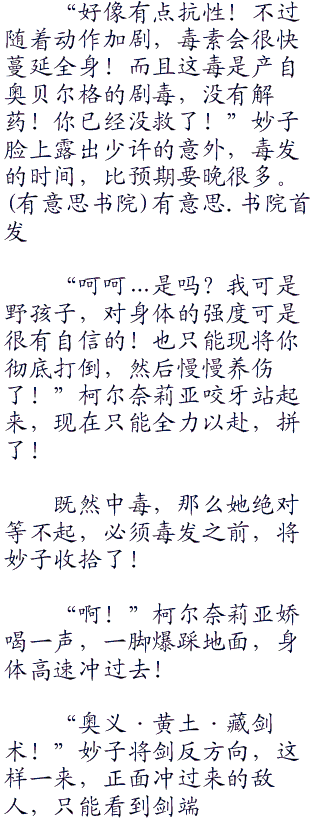 “好像有点抗性！不过
随着动作加剧，毒素会很快
蔓延全身！而且这毒是产自
奥贝尔格的剧毒，没有解
药！你已经没救了！”妙子
脸上露出少许的意外，毒发
的时间，比预期要晚很多。
(有意思书院)有意思.书院首
发
“呵呵…是吗？我可是
野孩子，对身体的强度可是
很有自信的！也只能现将你
彻底打倒，然后慢慢养伤
了！”柯尔奈莉亚咬牙站起
来，现在只能全力以赴，拼
了！
既然中毒，那么她绝对
等不起，必须毒发之前，将
妙子收拾了！
“啊！”柯尔奈莉亚娇
喝一声，一脚爆踩地面，身
体高速冲过去！
“奥义·黄土·藏剑
术！”妙子将剑反方向，这
样一来，正面冲过来的敌
人，只能看到剑端